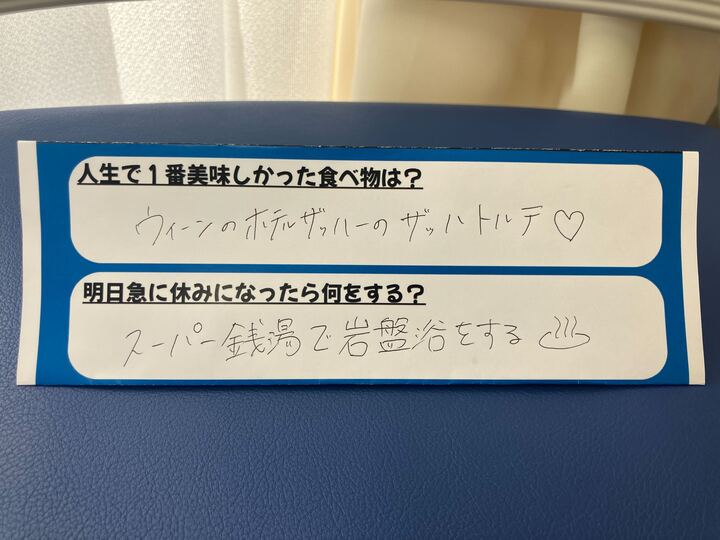 人生で1番美味しかった食べ物は?
ウィーンのホテルザッハーのザッハトルテ♡
明日急に休みになったら何をする?
スーパー銭湯で岩盤浴をする♨